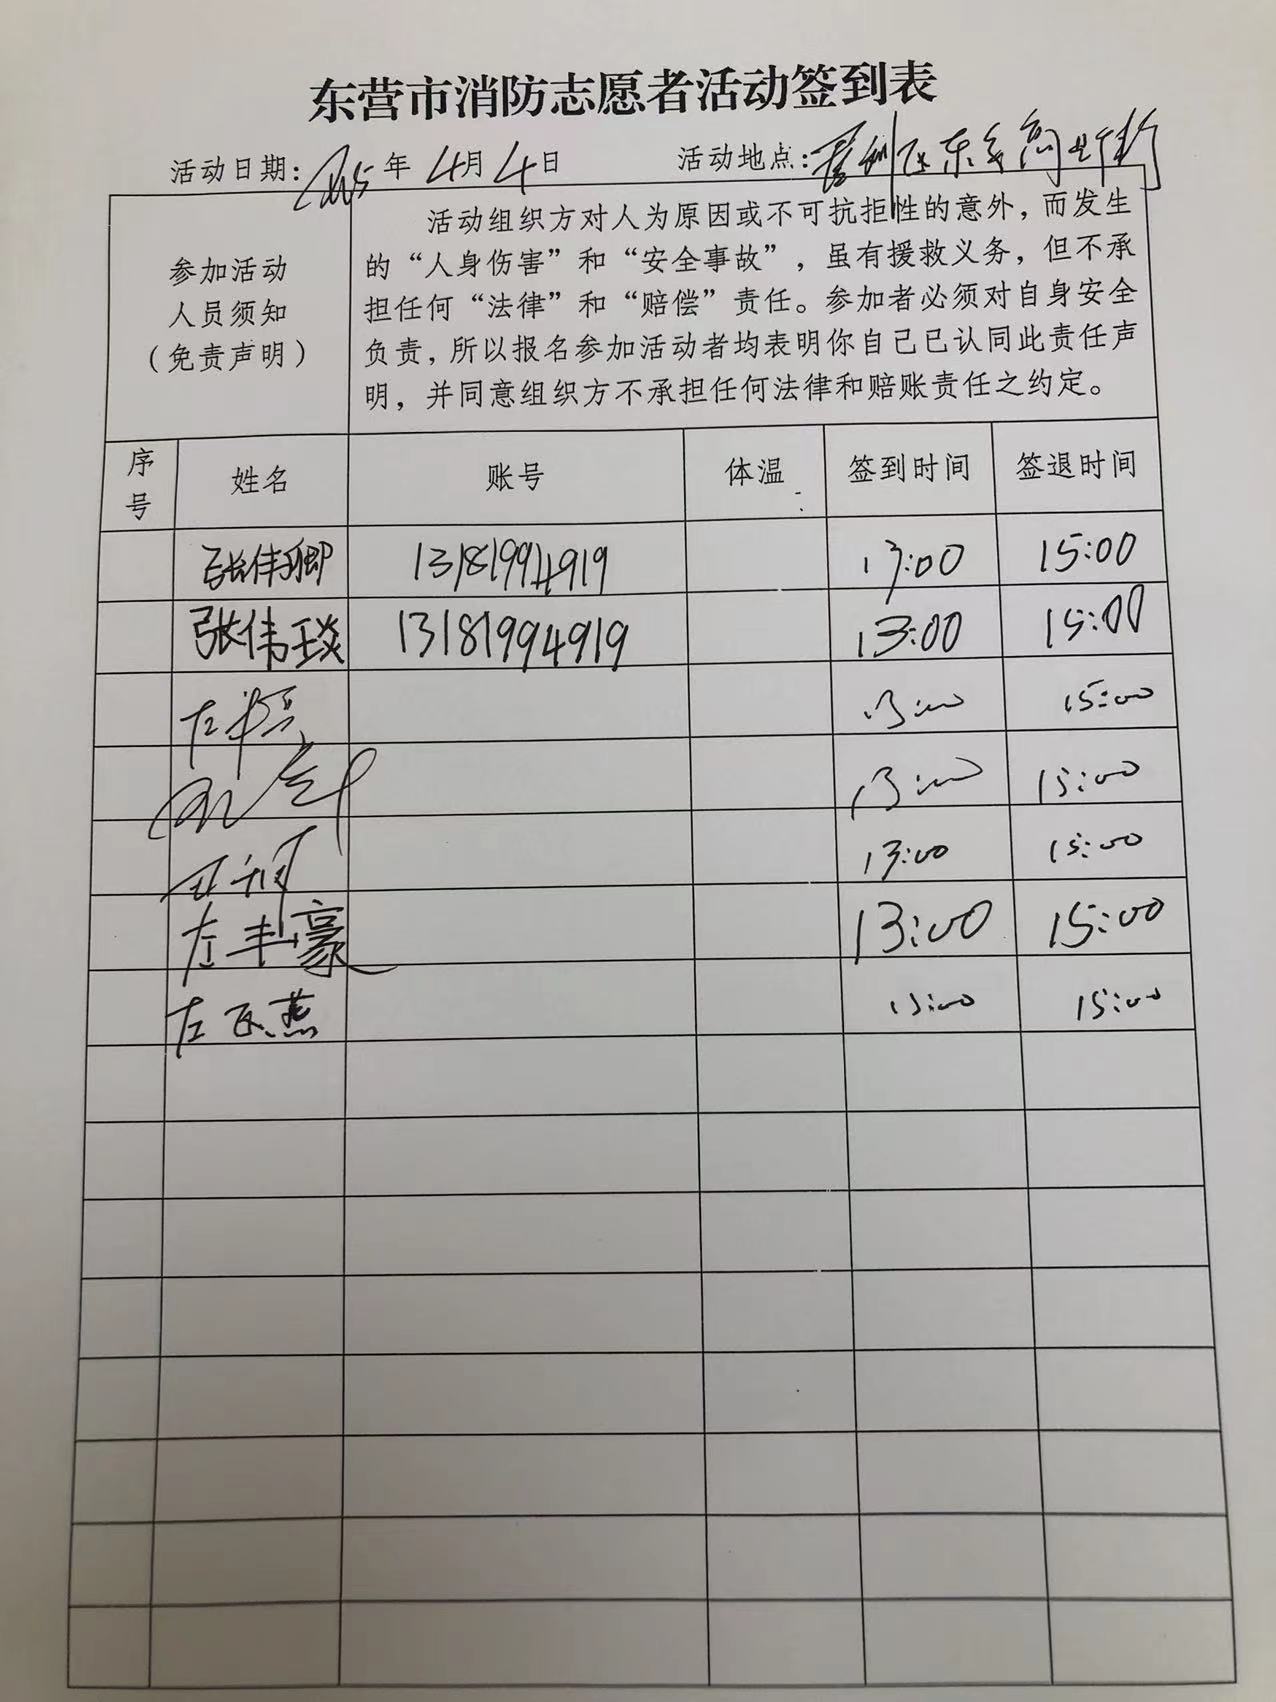 东营市消防志愿者活动签到表
活动日期：2025年4月4日 活动地点：垦利区东 商业街
参加活动人员须知（免责声明）
活动组织方对人为原因或不可抗拒性的意外，而发生
的“人身伤害”和“安全事故”，虽有援救义务，但不承
担任何“法律”和“赔偿”责任。参加者必须对自身安全
负责，所以报名参加活动者均表明你自己已认同此责任声
明，并同意组织方不承担任何法律和赔账责任之约定。
序号 姓名 账号 体温 签到时间 签退时间
张伟卿 13181994919 13:00 15:00
张伟琰 13181994919 13:00 15:00
左 13:00 15:00
13:00 15:00
13:00 15:00
左丰豪 13:00 15:00
左 燕 13:00 15:00